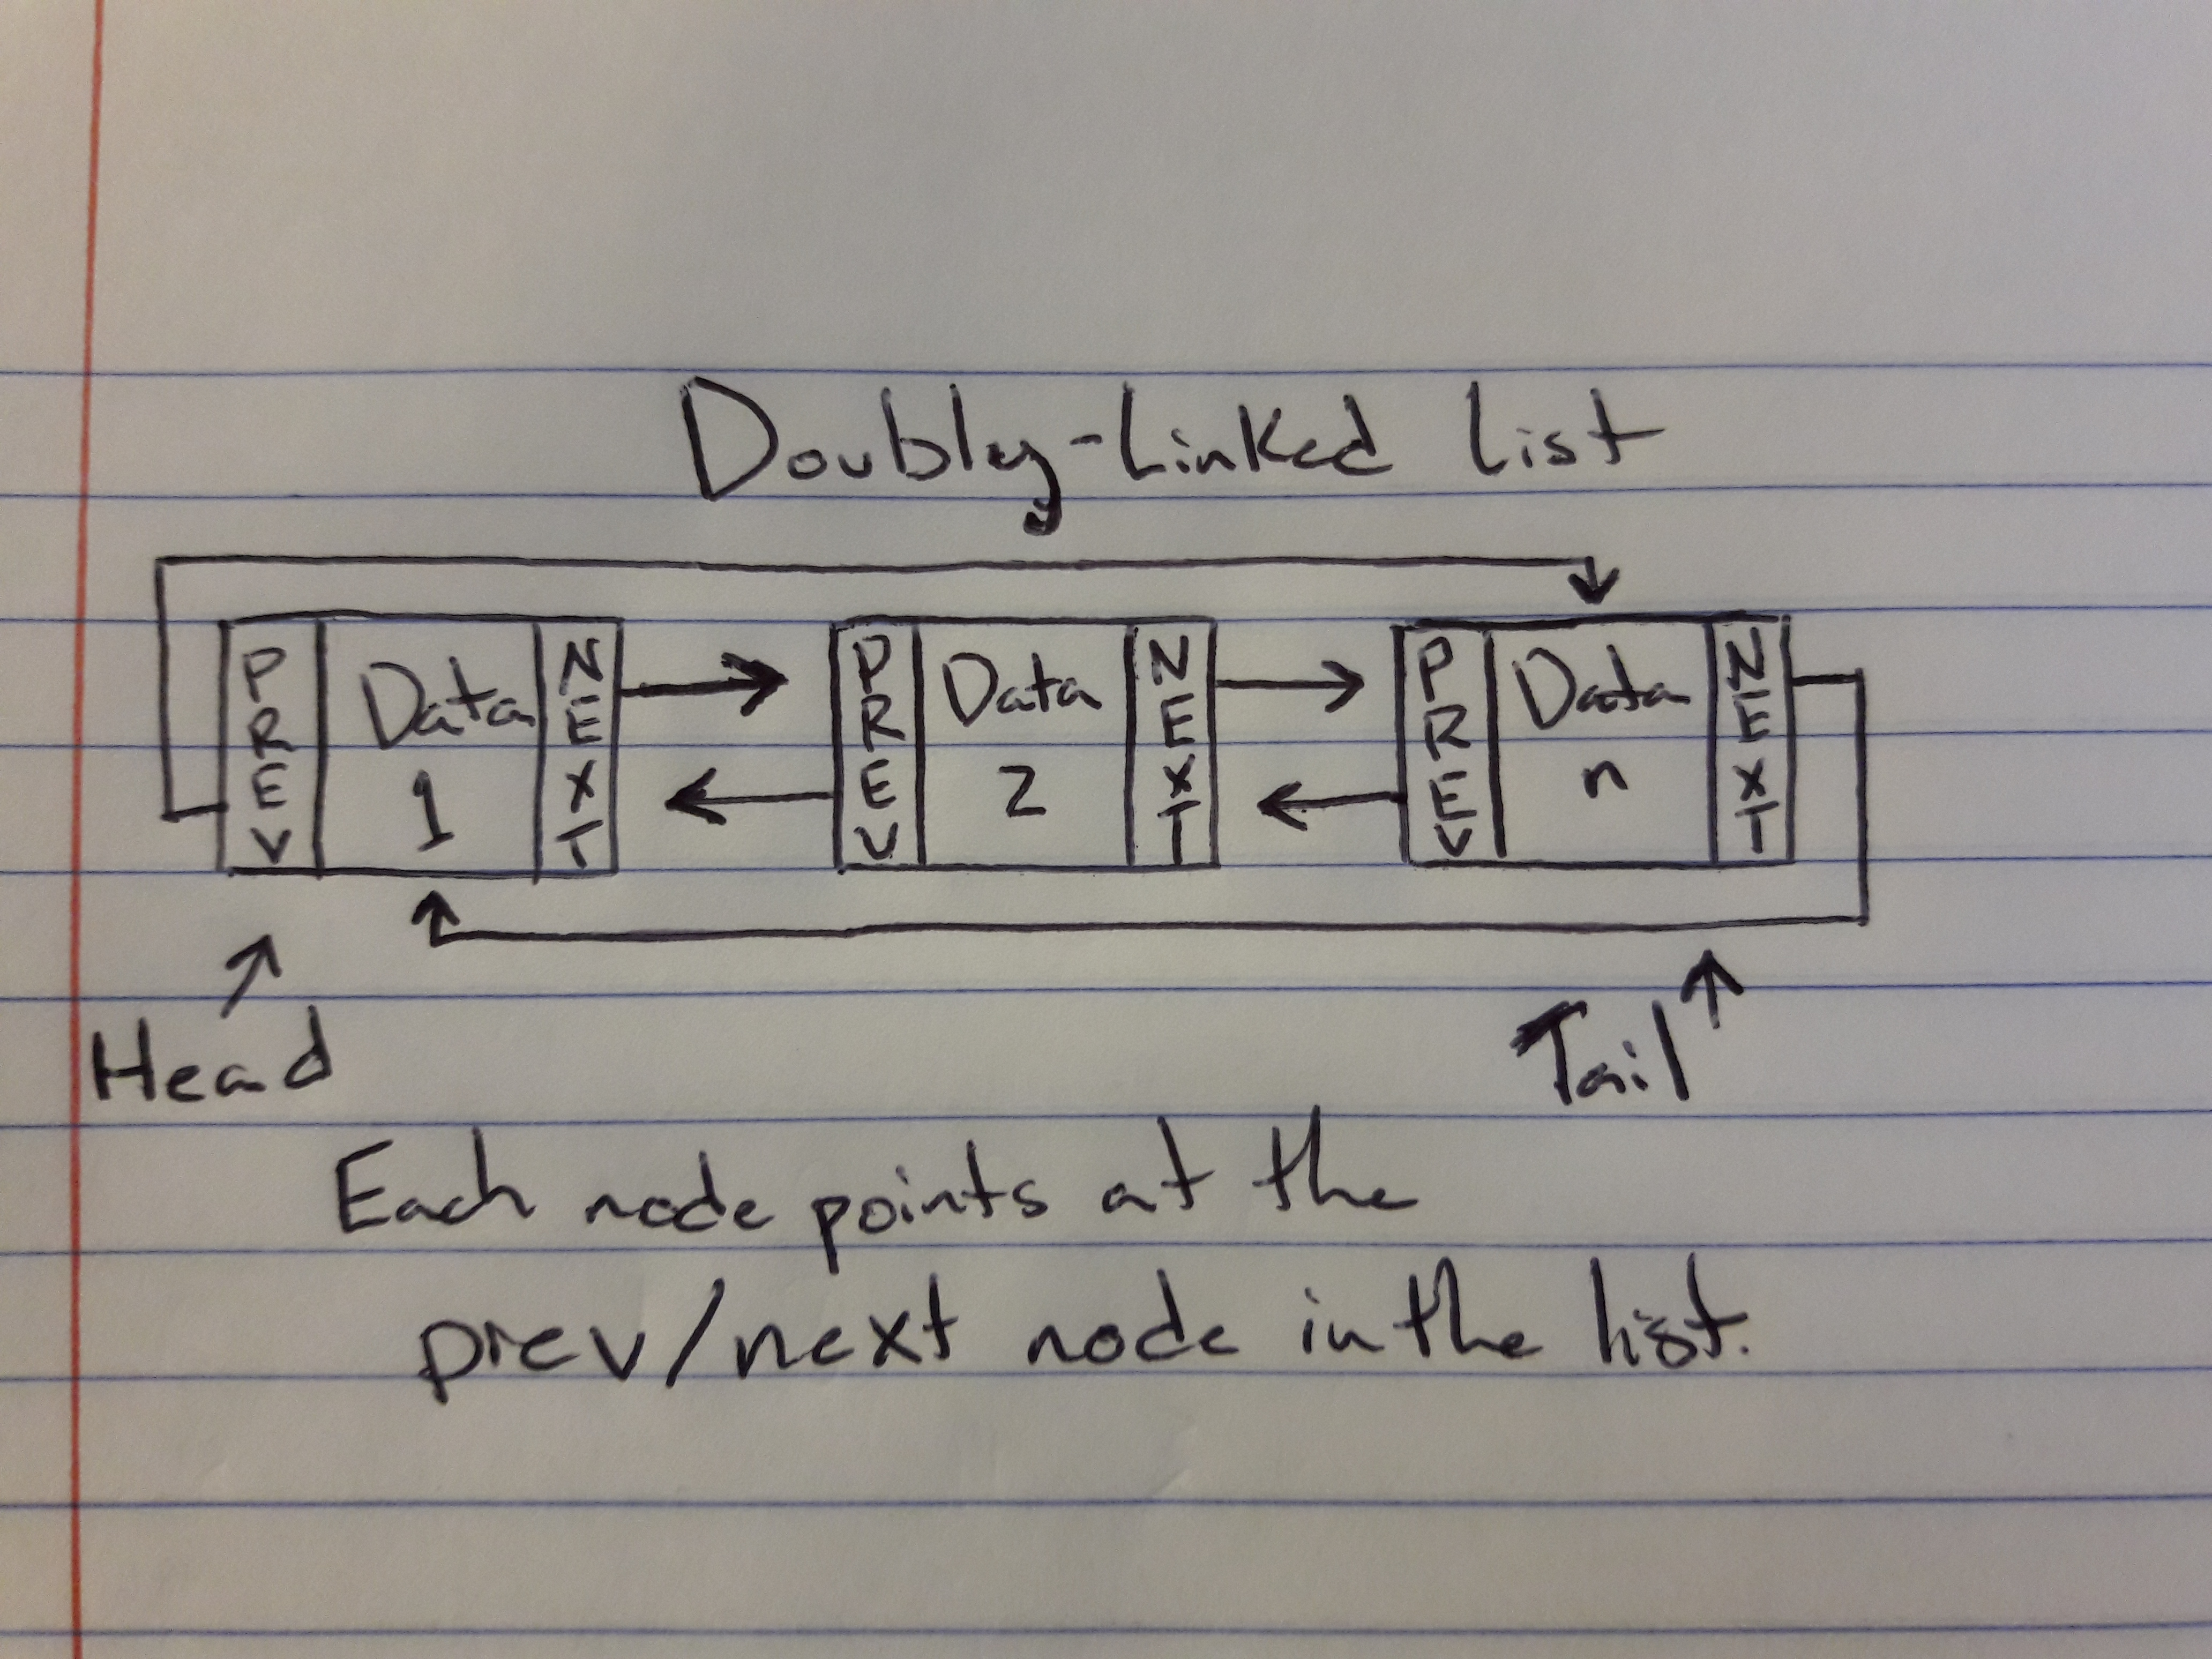 Doubly-Linked list
PREV Data 1 NEXT PREV Data 2 NEXT PREV Data n NEXT
Head Tail
Each node points at the
prev/next node in the list.